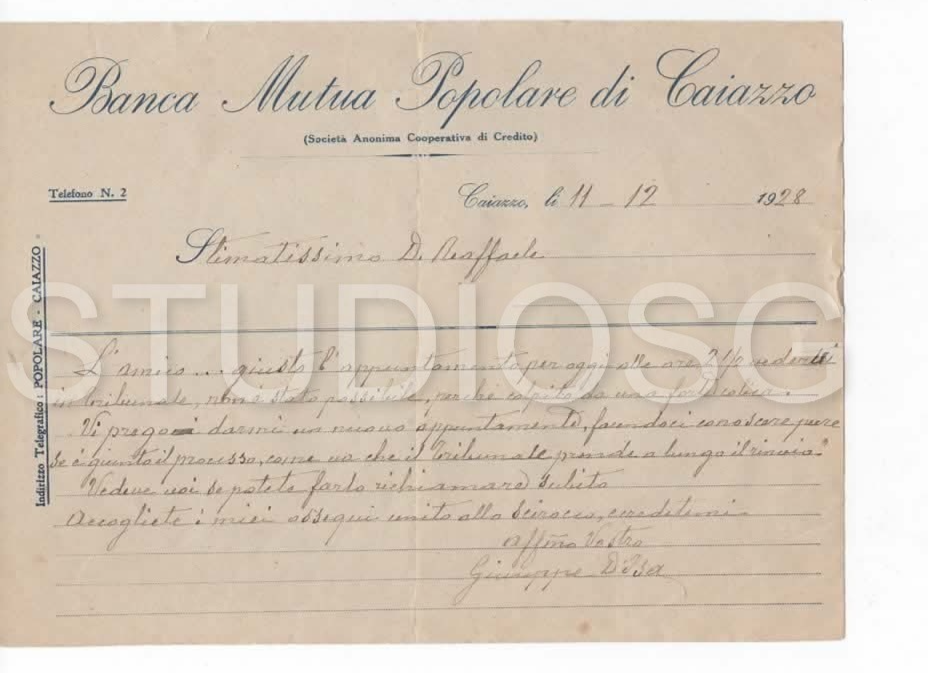 Banca Mutua Popolare di Caiazzo
(Società Anonima Cooperativa di Credito)
Telefono N. 2
Caiazzo, li 11 - 12 1928
Stimatissimo D. Raffaele
Indirizzo Telegrafico: POPOLARE - CAIAZZO
STUDIOSG
L'amico ... giusto l'appuntamento per oggi alle ore 2 1/2
in tribunale, non è stato possibile, perchè colpito da una forte colica.
Vi prego darmi un nuovo appuntamento, facendoci conoscere pure
se è giunto il processo, come va che il Tribunale prende a lungo il rinvio.
Vedete voi se potete farlo richiamare subito
Accogliete i miei ossequi unito allo Scirocco, credetemi
Affmo Vostro
Giuseppe